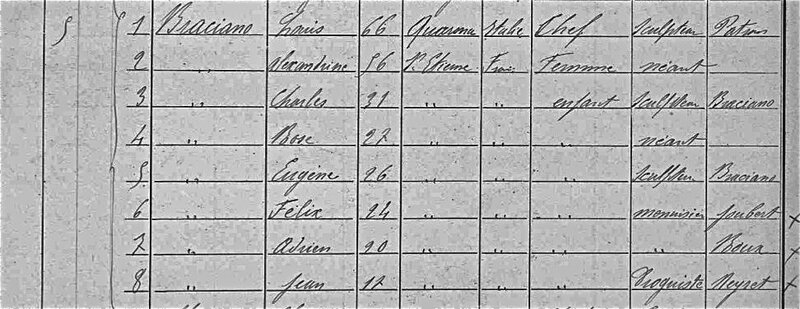 5 1 Braciano Louis 66 Italie Chef sculpteur Patron
2 " Alexandrine 56 St Etienne Frais Femme néant
3 " Charles 31 " " enfant sculpteur Braciano
4 " Rose 27 " " " néant
5 " Eugène 26 " " " sculpteur Braciano
6 " Félix 24 " " " menuisier Joubert x
7 " Adrien 20 " " " " Roux x
8 " Jean 17 " " " Droguiste Neyret x